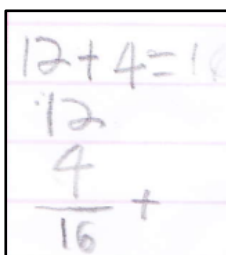 12+4=1
12
4
16 +